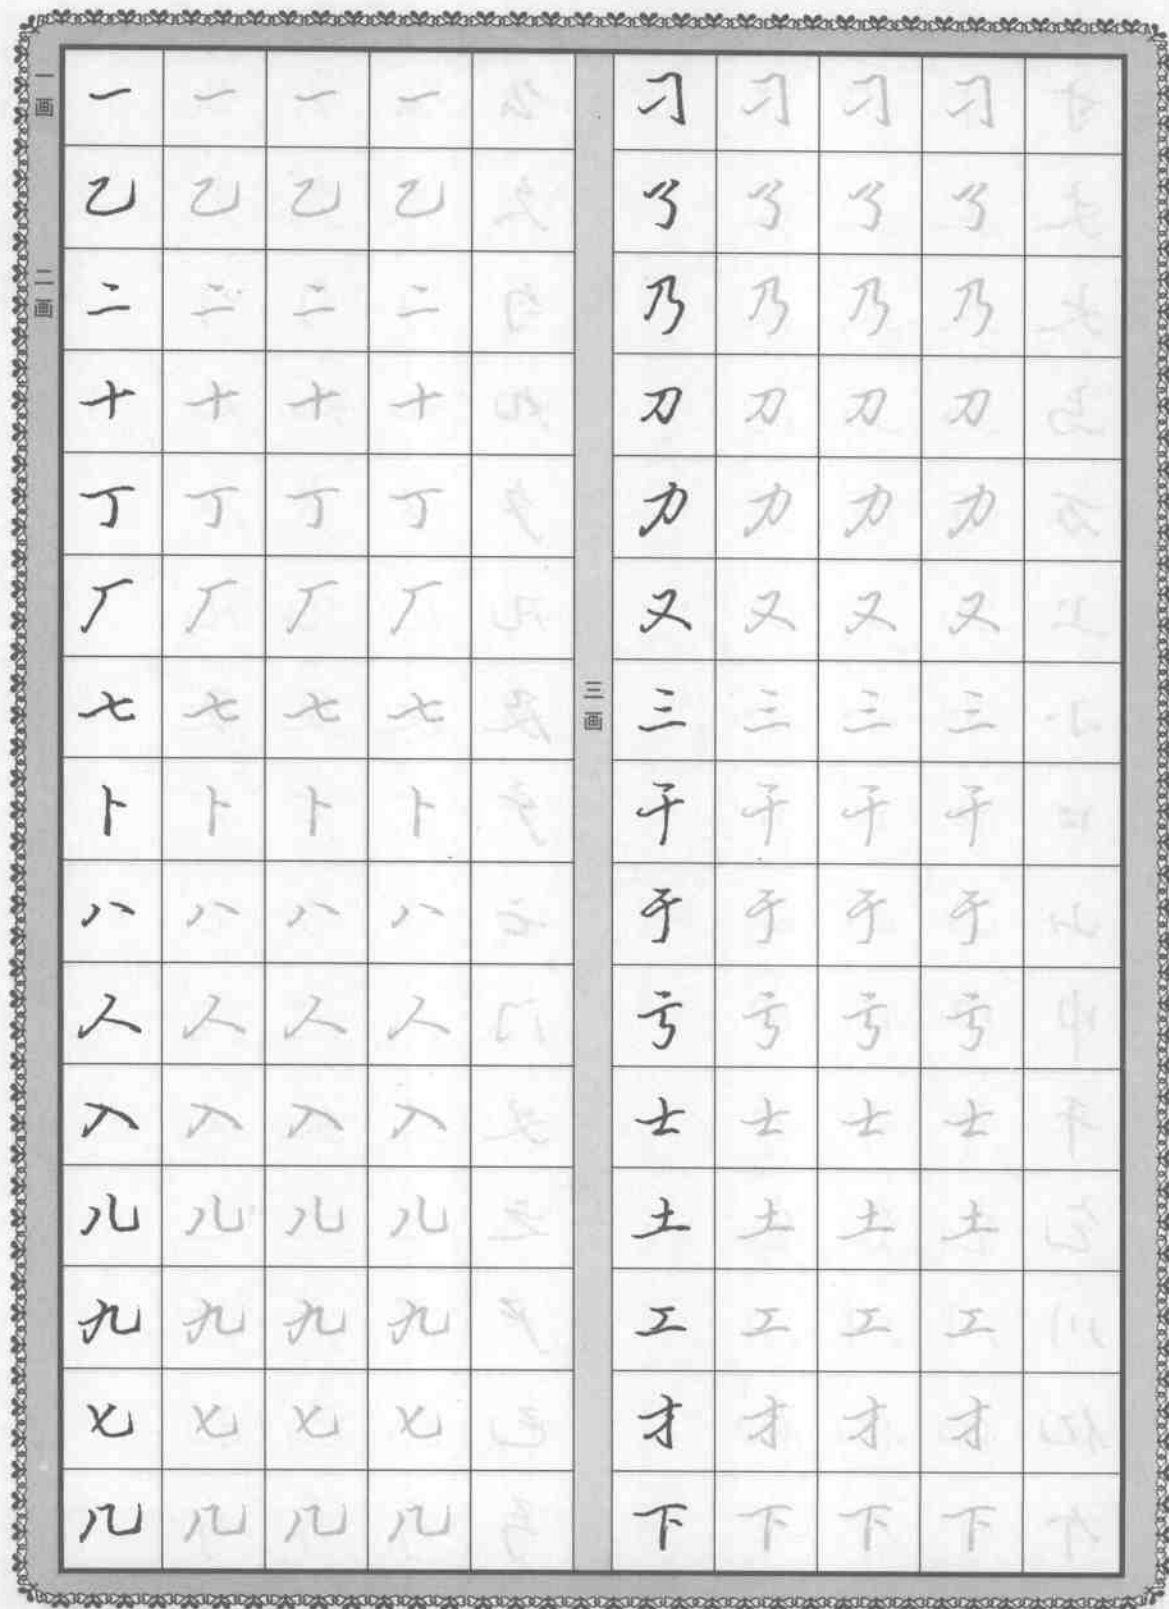 一画
一 一 一 一
乙 乙 乙 乙
二画
二 二 二 二
十 十 十 十
丁 丁 丁 丁
厂 厂 厂 厂
七 七 七 七
卜 卜 卜 卜
八 八 八 八
人 人 人 人
入 入 入 入
儿 儿 儿 儿
九 九 九 九
匕 匕 匕 匕
几 几 几 几
刁 刁 刁 刁
了 了 了 了
乃 乃 乃 乃
刀 刀 刀 刀
力 力 力 力
又 又 又 又
三画
三 三 三 三
干 干 干 干
于 于 于 于
亏 亏 亏 亏
士 士 士 士
土 土 土 土
工 工 工 工
才 才 才 才
下 下 下 下